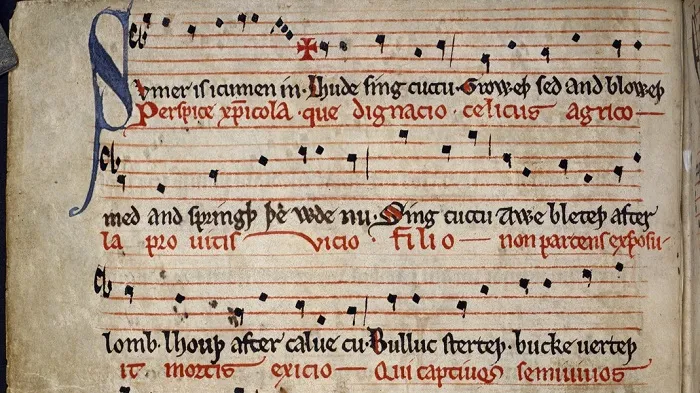 Sumer is icumen in· Lhude sing cuccu· Groweþ sed and bloweþ
Perspice xp̅icola· que dignacio· celicus agrico—
med and springþ þe wde nu· Sing cuccu Awe bleteþ after
la pro uitis vicio· filio— non parcens exposu-
lomb· lhouþ after calue cu· Bulluc sterteþ· bucke uerteþ
it mortis exicio— Qui captiuos semiuiuos